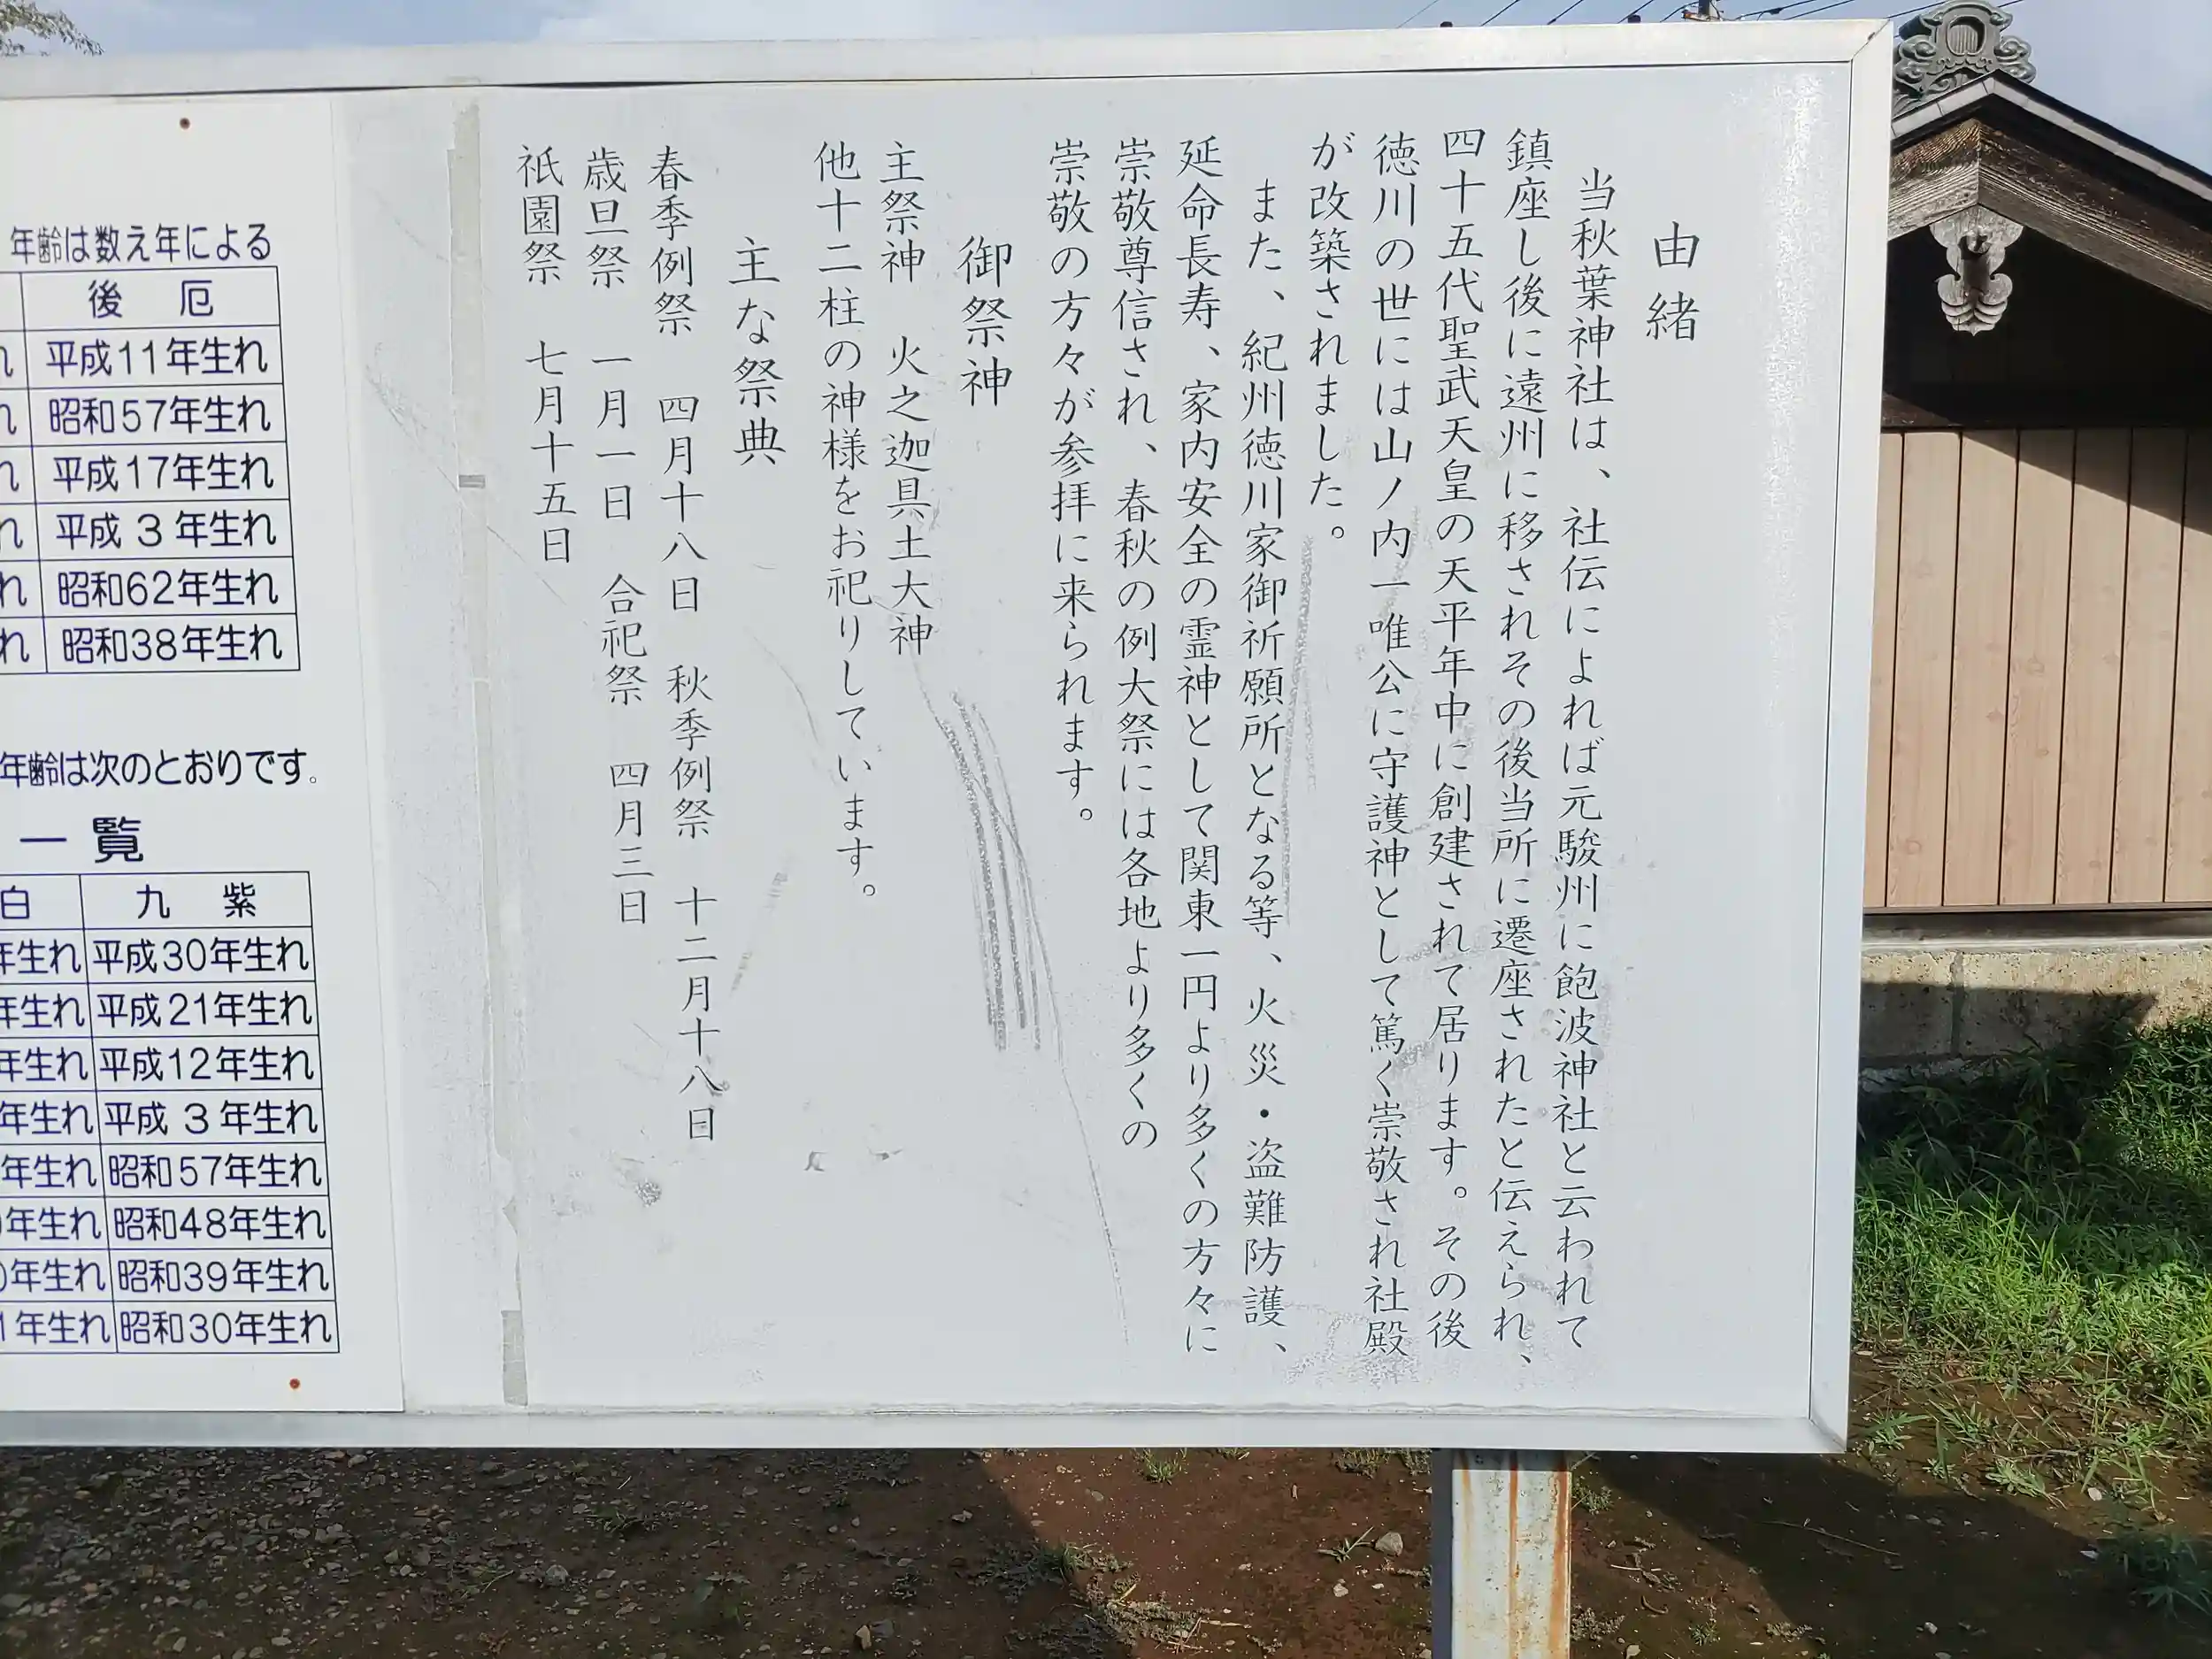 由緒
当秋葉神社は、社伝によれば元駿州に飽波神社と云われて
鎮座し後に遠州に移されその後当所に遷座されたと伝えられ、
四十五代聖武天皇の天平年中に創建されて居ります。その後
徳川の世には山ノ内一唯公に守護神として篤く崇敬され社殿
が改築されました。
また、紀州徳川家御祈願所となる等、火災・盗難防護、
延命長寿、家内安全の霊神として関東一円より多くの方々に
崇敬尊信され、春秋の例大祭には各地より多くの
崇敬の方々が参拝に来られます。
御祭神
主祭神 火之迦具土大神
他十二柱の神様をお祀りしています。
主な祭典
春季例祭 四月十八日 秋季例祭 十二月十八日
歳旦祭 一月一日 合祀祭 四月三日
祇園祭 七月十五日
年齢は数え年による
後厄
れ 平成11年生れ
れ 昭和57年生れ
れ 平成17年生れ
れ 平成3年生れ
れ 昭和62年生れ
れ 昭和38年生れ
年齢は次のとおりです。
一覧
白 九紫
年生れ 平成30年生れ
年生れ 平成21年生れ
年生れ 平成12年生れ
年生れ 平成3年生れ
年生れ 昭和57年生れ
年生れ 昭和48年生れ
0年生れ 昭和39年生れ
1年生れ 昭和30年生れ